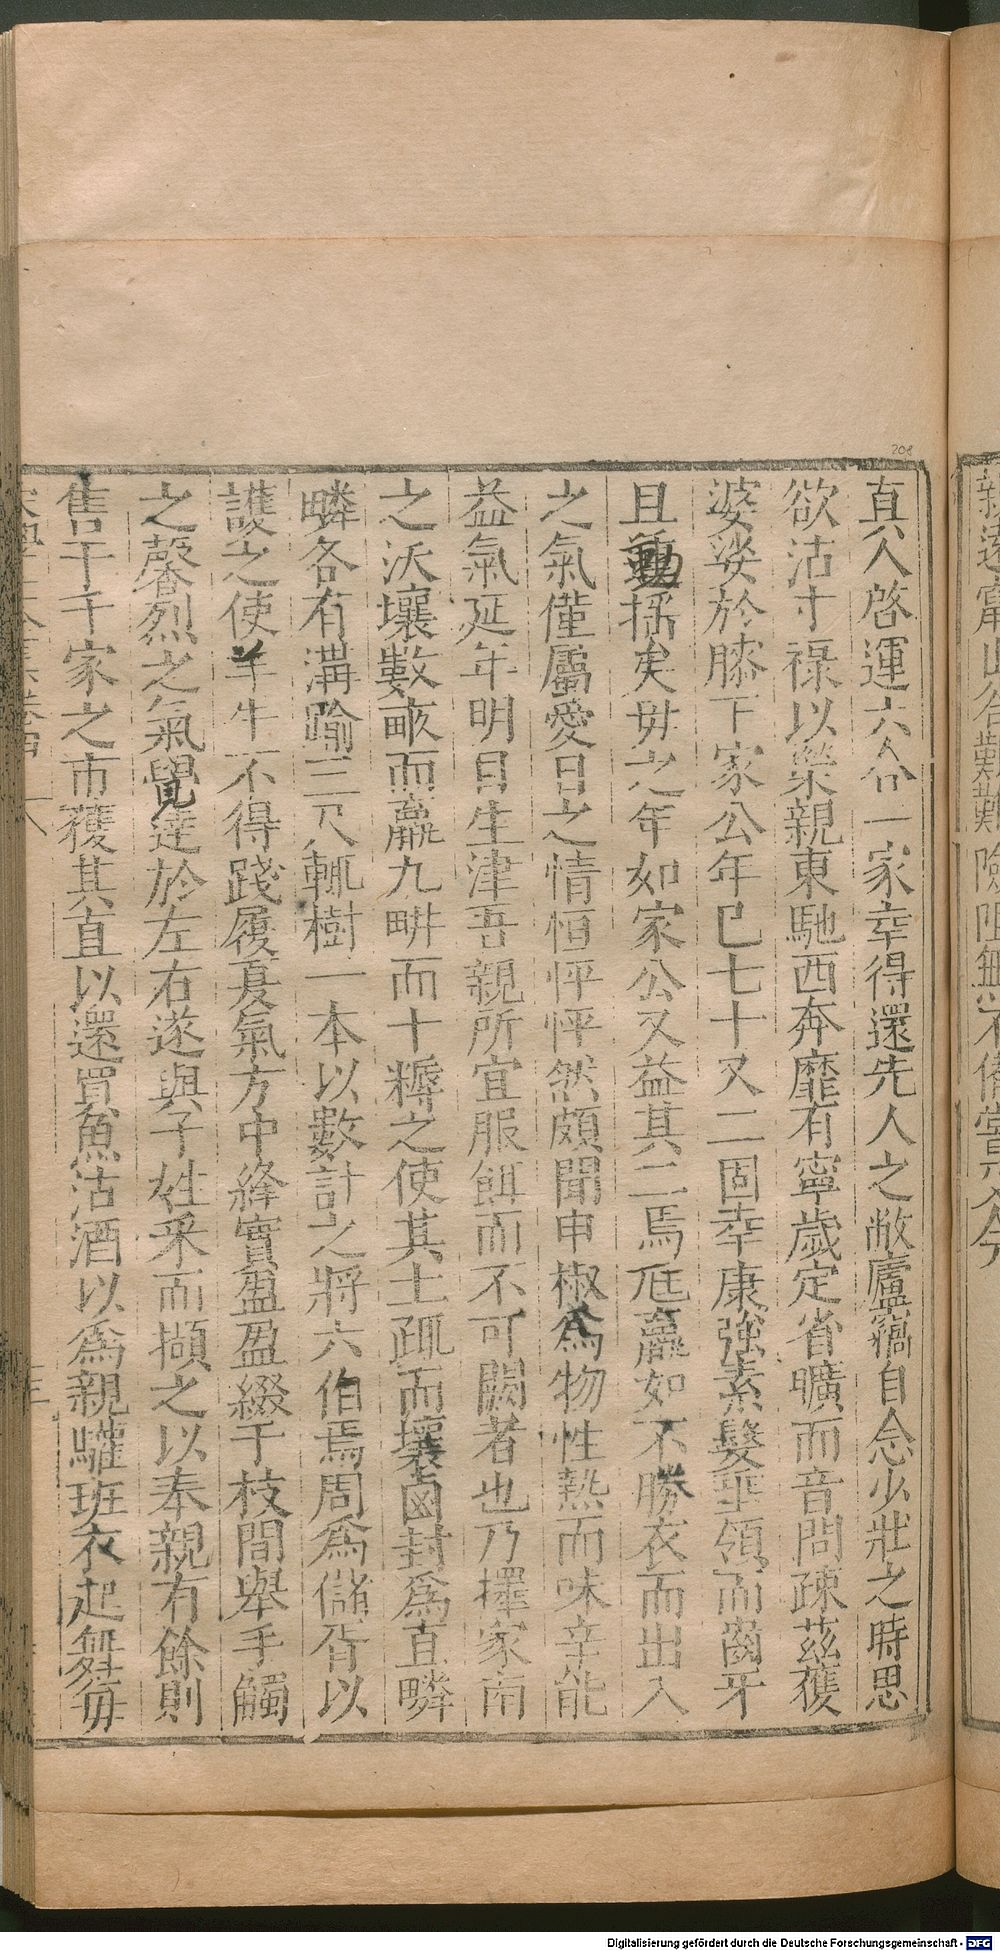 真人啓運六合一家幸得還先人之敝廬竊自念少壯之時思
欲沽寸祿以榮親東馳西奔靡有寧歲定省曠而音問疎茲獲
婆娑於膝下家公年已七十又二固幸康強素髮垂領而齒牙
且動搖矣毋之年如家公又益其二焉尫羸如不勝衣而出入
之氣僅屬愛日之情恒怦怦然頗聞申椒爲物性熱而味辛能
益氣延年明目生津吾親所宜服餌而不可闕者也乃擇家南
之沃壤數畝而羸九畊而十耨之使其土疏而壤鹵封爲直疄
疄各有溝踰三尺輒樹一本以數計之將六伯焉周爲儲胥以
護之使羊牛不得踐履夏氣方中絳實盈盈綴于枝間舉手觸
之馨烈之氣覺達於左右遂與子姓釆而擷之以奉親有餘則
售于千家之市穫其直以還買魚沽酒以爲親驩班衣起舞毋
208
Digitalisierung gefördert durch die Deutsche Forschungsgemeinschaft - DFG